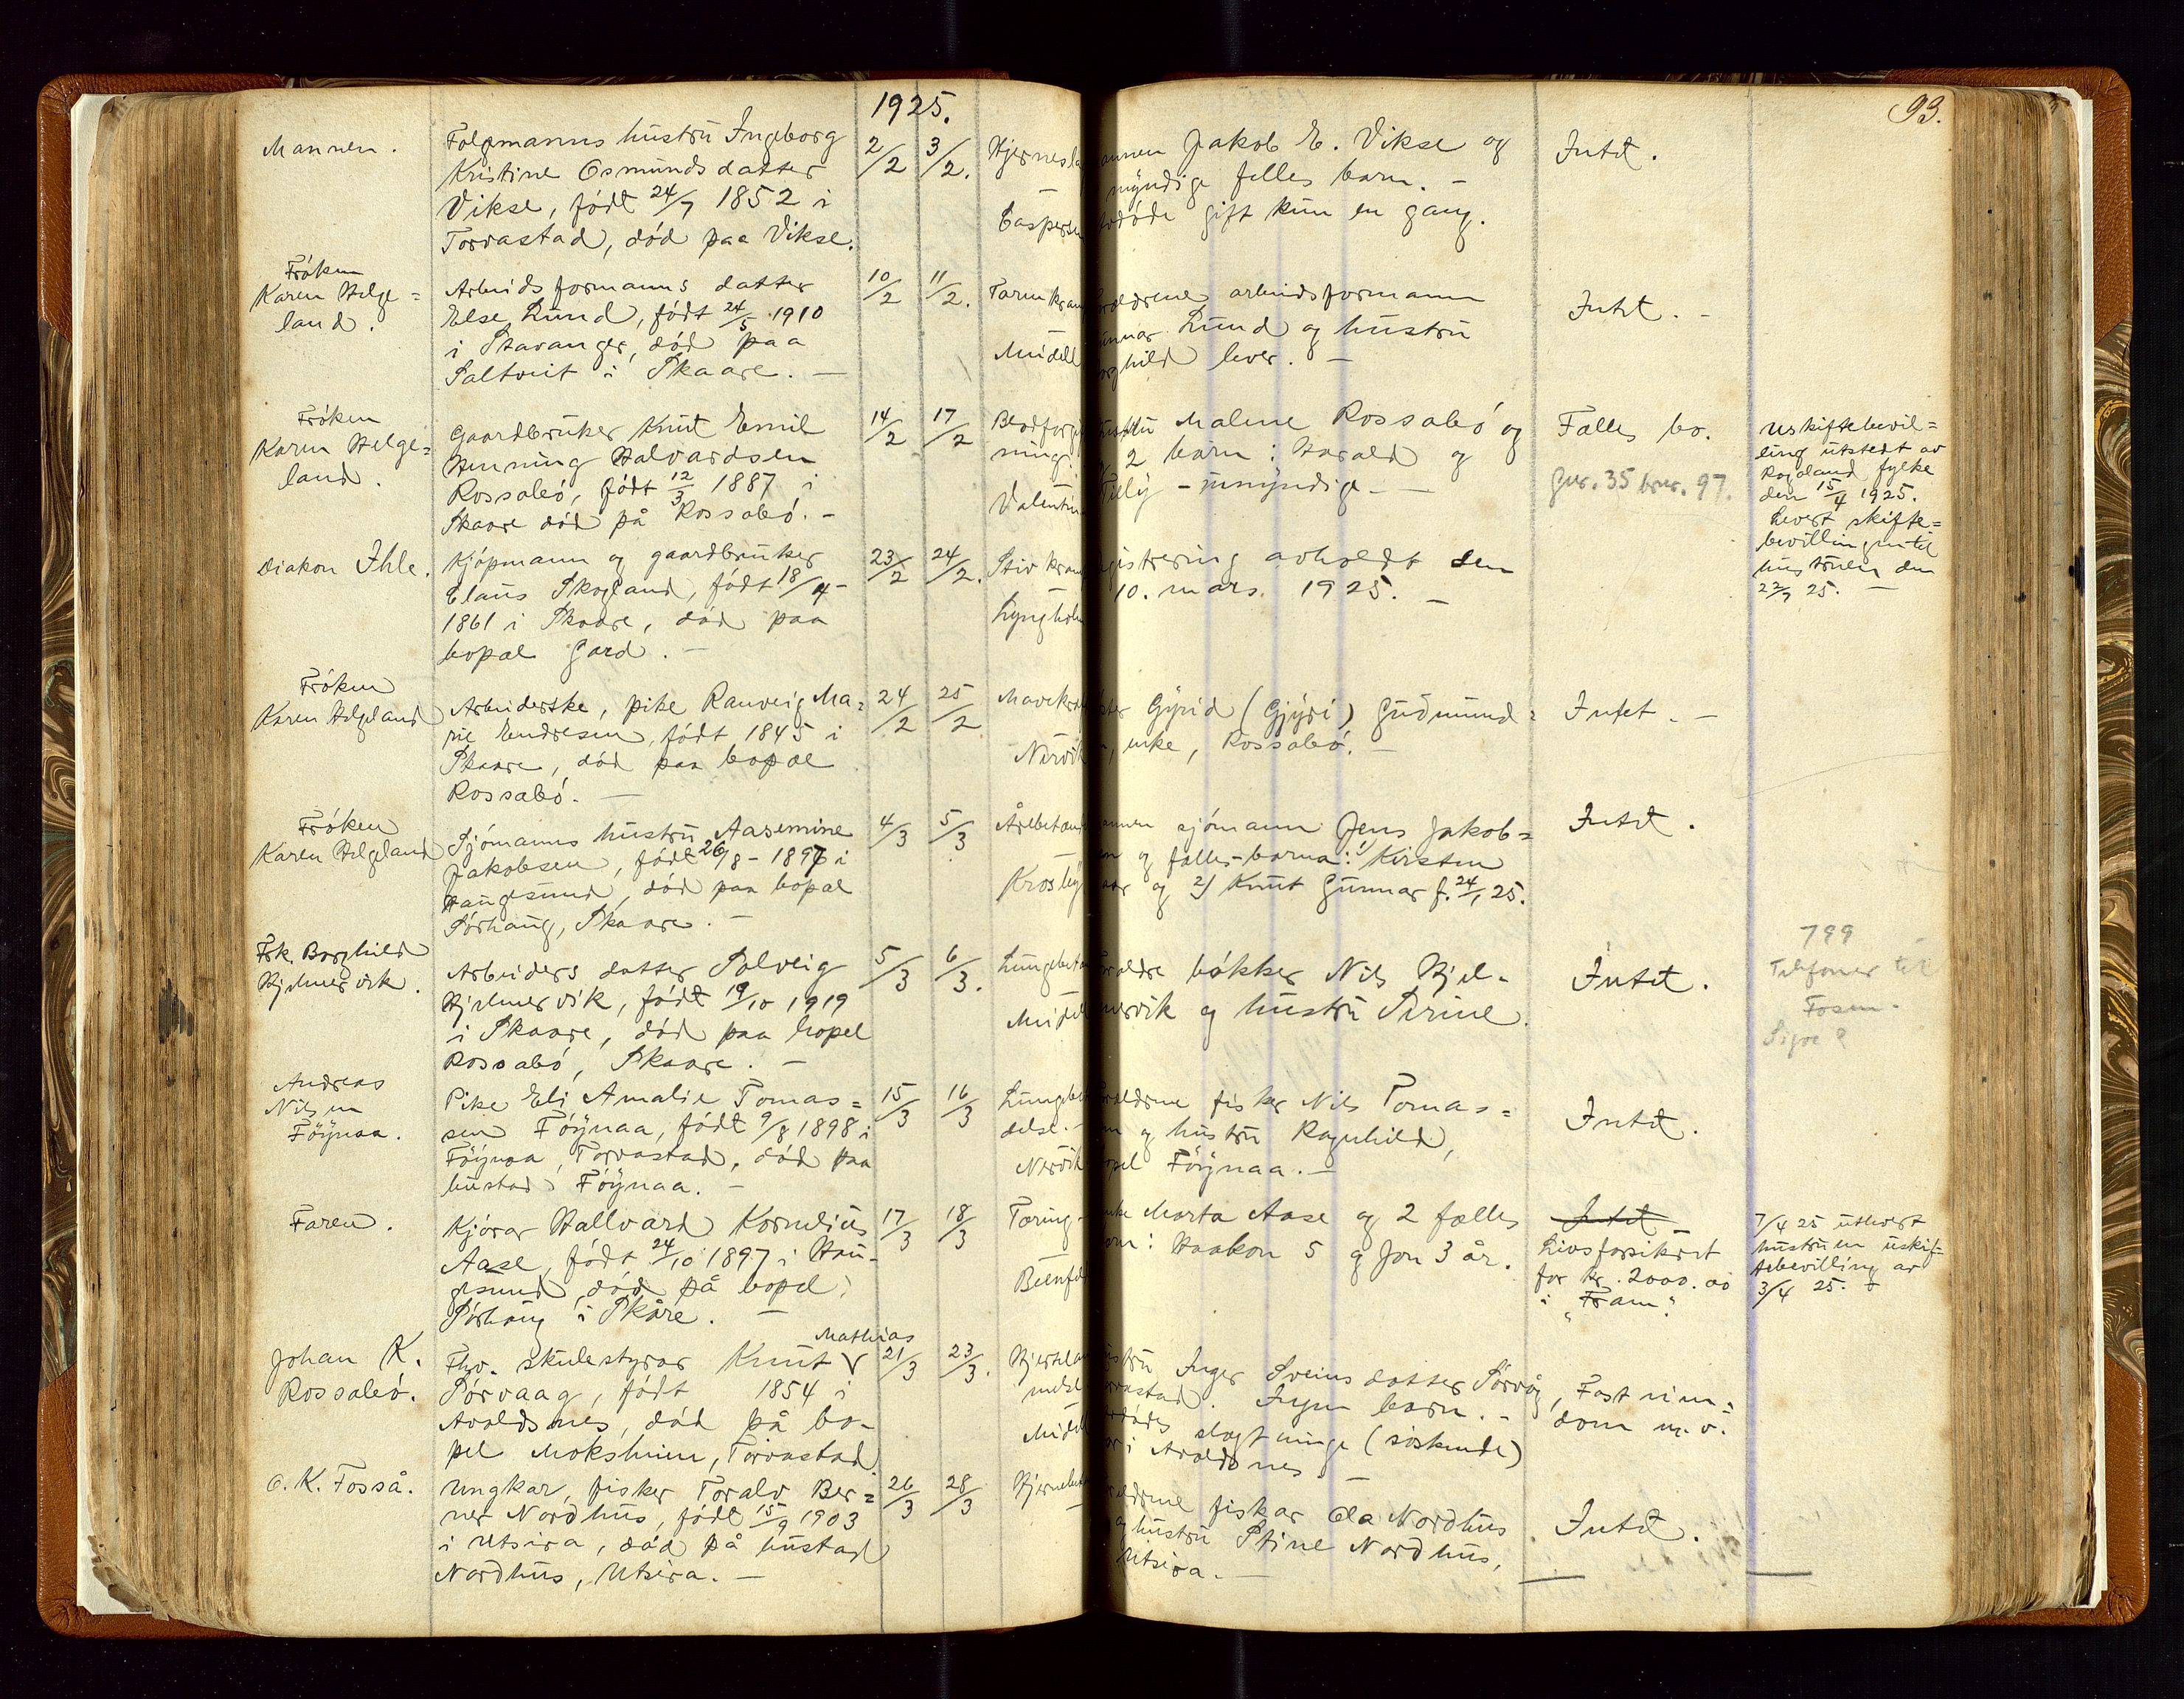 1925.
93.
Mannen.
Folgmanns hustru Ingeborg
Kristine Osmundsdatter
Vikse, født 24/7 1852 i
Torvastad, død paa Vikse.
2/2 3/2.
Hjernesla
Caspersen
annen Jakob E. Vikse og
myndige felles barn. -
døde gift kun en gang.
Intet.
Frøken
Karen Helge=
land.
Arbeidsformanns datter
Else Lund, født 24/5 1910
i Stavanger, død paa
Saltveit i Skaare. -
10/2 11/2.
Tarmkram
Meidell
rældrene arbeidsformann
unnar Lund og hustru
orghild lever. -
Intet. -
Frøken
Karen Helge=
land.
Gaardbruker Knut Emil
Henning Halvardsen
Rossabø, født 12/3 1887 i
Skaare død på Rossabø. -
14/2 17/2
Blodforgif
ning.
Valentin
ustru Malene Rossabø og
2 barn: Harald og
Tilly - umyndige -
Fælles bo.
Gnr. 35 brnr. 97.
Uskiftebevil=
ling utstedt av
Rogaland fylke
den 15/4 1925.
Levert skifte=
bevillingen til
hustruen den
22/7 25. -
Diakon Ihle.
Kjøpmann og gaardbruker
Claus Skogland, født 18/4 -
1861 i Skaare, død paa
bopæl Gard. -
23/2 24/2.
Stivkram
Lyngholm
gistrering avholdt den
10. mars. 1925. -
Frøken
Karen Helgeland
Arbeiderske, pike Ranveig Ma=
rie Endresen, født 1845 i
Skaare, død paa bopæl
Rossabø. -
24/2 25/2
Mavekræ
Nærvik
ster Gyrid (Gjyri) Gudmund=
, enke, Rossabø. -
Intet. -
Frøken
Karen Helgeland
Sjømanns hustru Aasemine
Jakobsen, født 26/8 - 1897 i
Haugesund, død paa bopæl
Sørhaug, Skaare. -
4/3 5/3
Årebetænd
Krosby
annen sjømann Jens Jakob=
en og fælles-barna: 1) Kirsten
aar og 2) Knut Gunnar f. 24/1 25.
Intet.
Frk. Borghild
Hjelmervik.
Arbeiders datter Solveig
Hjelmervik, født 19/10 1919
i Skaare, død paa bopel
Rossabø, Skaare. -
5/3 6/3.
Lungebetæ
Meidel
oreldre bøkker Nils Hjel-
mervik og hustru Sirine.
Intet.
799
Telefoner til
Fosen.
Andreas
Nilsen
Föÿnaa.
Pike Eli Amalie Tomas=
sen Föÿnaa, født 9/8 1898 i
Föÿnaa, Torvastad, død paa
bustad Föÿnaa. -
15/3 16/3
Lungebe
delse. -
Nervik
rældrene fisker Nils Tomas=
n og hustru Ragnhild,
opel Föÿnaa. -
Intet.
Faren.
Kjørar Hallvard Kornelius
Aase, født 24/10 1897 i Hau-
gesund, død på bopel
Sørhaug i Skåre. -
17/3 18/3
Tæring -
Bienfel
nke Marta Aase og 2 fælles
arn: Haakon 5 og Jon 3 år.
Intet -
Livsforsikret
for kr. 2000.00
i "Fram".
7/4 25 utlevert
hustruen uskif-
tebevilling av
3/4 25.
Johan K.
Rossabø.
Fhv. skulestyrar Knut Mathias
Sørvaag, født 1854 i
Avaldsnes, død på bo-
pel Moksheim, Torvastad
21/3 23/3.
Hjertelam
melse
Midel
ustru Inger Sveinsdatter Sørvåg,
orvastad. Ingen barn. -
vdødes slegtninge (søskende)
or i Avaldsnes -
Fast eien=
dom m.v.
O. K. Fosså.
Ungkar, fisker Toralv Ber=
ner Nordhus, født 15/9 1903
i Utsira, død på bustad
Nordhus, Utsira. -
26/3 28/3
Hjernebet
oreldrene fiskar Ola Nordhus
og hustru Stine Nordhus,
Utsira. -
Intet.